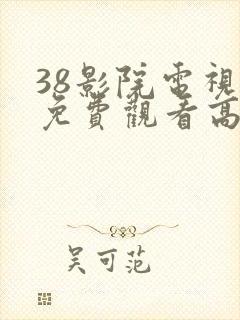 38影院電視
免費觀看高
吴可范